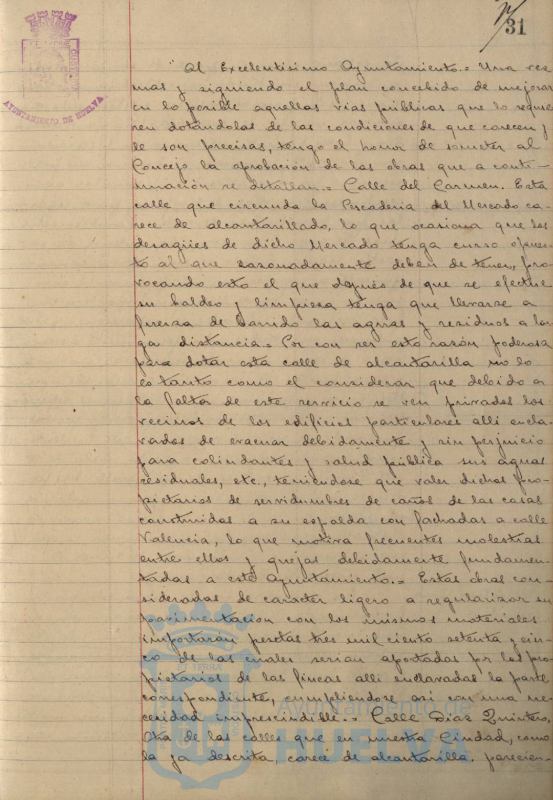 31
AYUNTAMIENTO DE HUELVA
"Al Excelentísimo Ayuntamiento.= Una vez
mas y siguiendo el plan concebido de mejorar
en lo posible aquellas vías públicas que lo requie
ren dotándolas de las condiciones de que carecen y
le son precisas, tengo el honor de someter al
Concejo la aprobación de las obras que a conti-
nuación se detallan.= Calle del Carmen. Esta
calle que circunda la Pescadería del Mercado ca-
rece de alcantarillado, lo que ocasiona que los
desagües de dicho Mercado tenga curso opues-
to al que razonadamente deben de tener, pro-
vocando esto el que después de que se efectue
su baldeo y limpieza tenga que llevarse a
fuerza de barrido las aguas y residuos a lar
ga distancia.= Por con ser esto razón poderosa
para dotar esta calle de alcantarilla no lo
es tanto como el considerar que debido a
la falta de este servicio se ven privados los
vecinos de los edificios particulares alli encla-
vados de evacuar debidamente y sin perjuicio
para colindantes y salud pública sus aguas
residuales, etc., teniendose que valer dichos pro-
pietarios de servidumbres de caños de las casas
construidas a su espalda con fachadas a calle
Valencia, lo que motiva frecuentes molestias
entre ellos y quejas debidamente fundamen-
tadas a este Ayuntamiento.= Estas obras con-
sideradas de carácter ligero a regularizar su
pavimentacion con los mismos materiales
importarán pesetas tres mil ciento setenta y cin-
co de las cuales serian aportadas por los pro-
pietarios de las fincas alli enclavadas la parte
correspondiente, cumpliendose asi con una ne-
cesidad imprescindible.= Calle Diaz Quintero.
Otra de las calles que en nuestra Ciudad, como
la ya descrita, carece de alcantarilla, parecien-
Ayuntamiento de
HUELVA